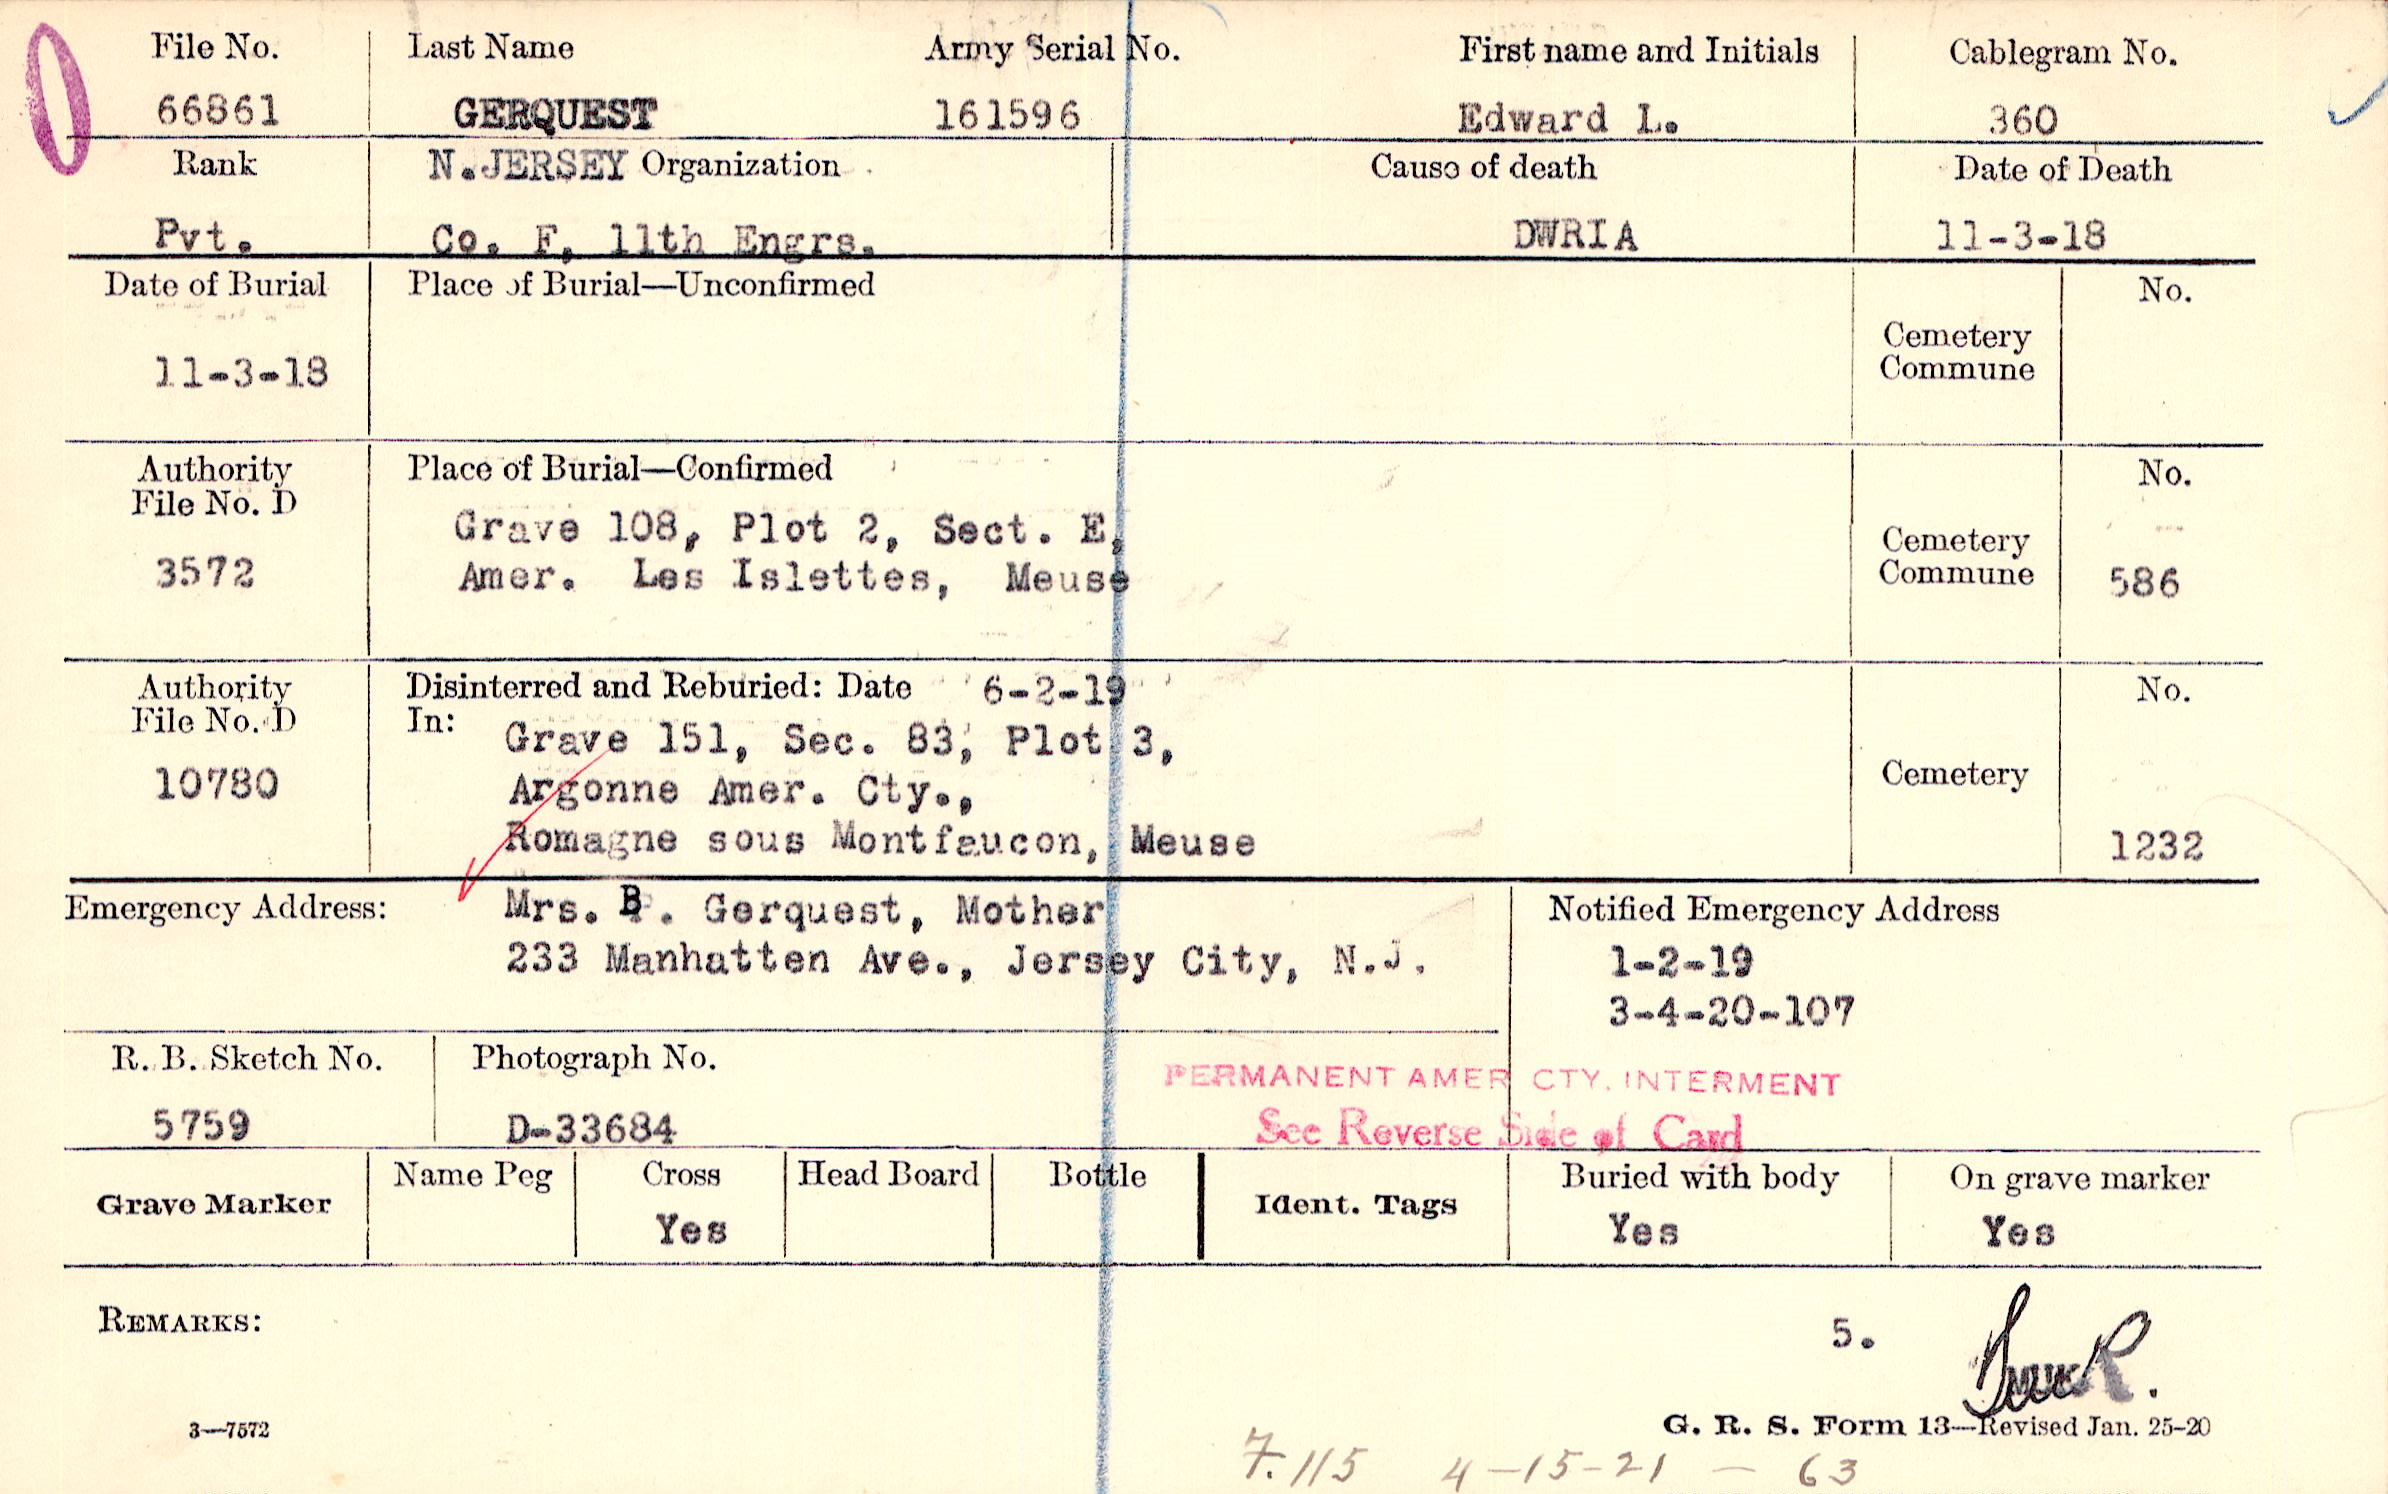 File No. Last Name Army Serial No. First name and Initials Cablegram No.
66861 GERQUEST 161596 Edward L. 360
Rank N.JERSEY Organization Cause of death Date of Death
Pvt. Co. F, 11th Engrs. DWRIA 11-3-18
Date of Burial Place of Burial—Unconfirmed No.
Cemetery
Commune
11-3-18
Authority Place of Burial—Confirmed No.
File No. D
Grave 108, Plot 2, Sect. E,
Cemetery
3572 Amer. Les Islettes, Meuse Commune 586
Authority Disinterred and Reburied: Date 6-2-19 No.
File No. D In:
Grave 151, Sec. 83, Plot 3,
10780 Argonne Amer. Cty., Cemetery
Romagne sous Montfaucon, Meuse 1232
Emergency Address: Mrs. B. Gerquest, Mother Notified Emergency Address
233 Manhatten Ave., Jersey City, N.J. 1-2-19
3-4-20-107
R. B. Sketch No. Photograph No.
PERMANENT AMER CTY. INTERMENT
5759 D-33684 See Reverse Side of Card
Grave Marker Name Peg Cross Head Board Bottle Ident. Tags Buried with body On grave marker
Yes Yes Yes
REMARKS: 5.
3—7572 G. R. S. Form 13—Revised Jan. 25-20
7.115 4-15-21 - 63